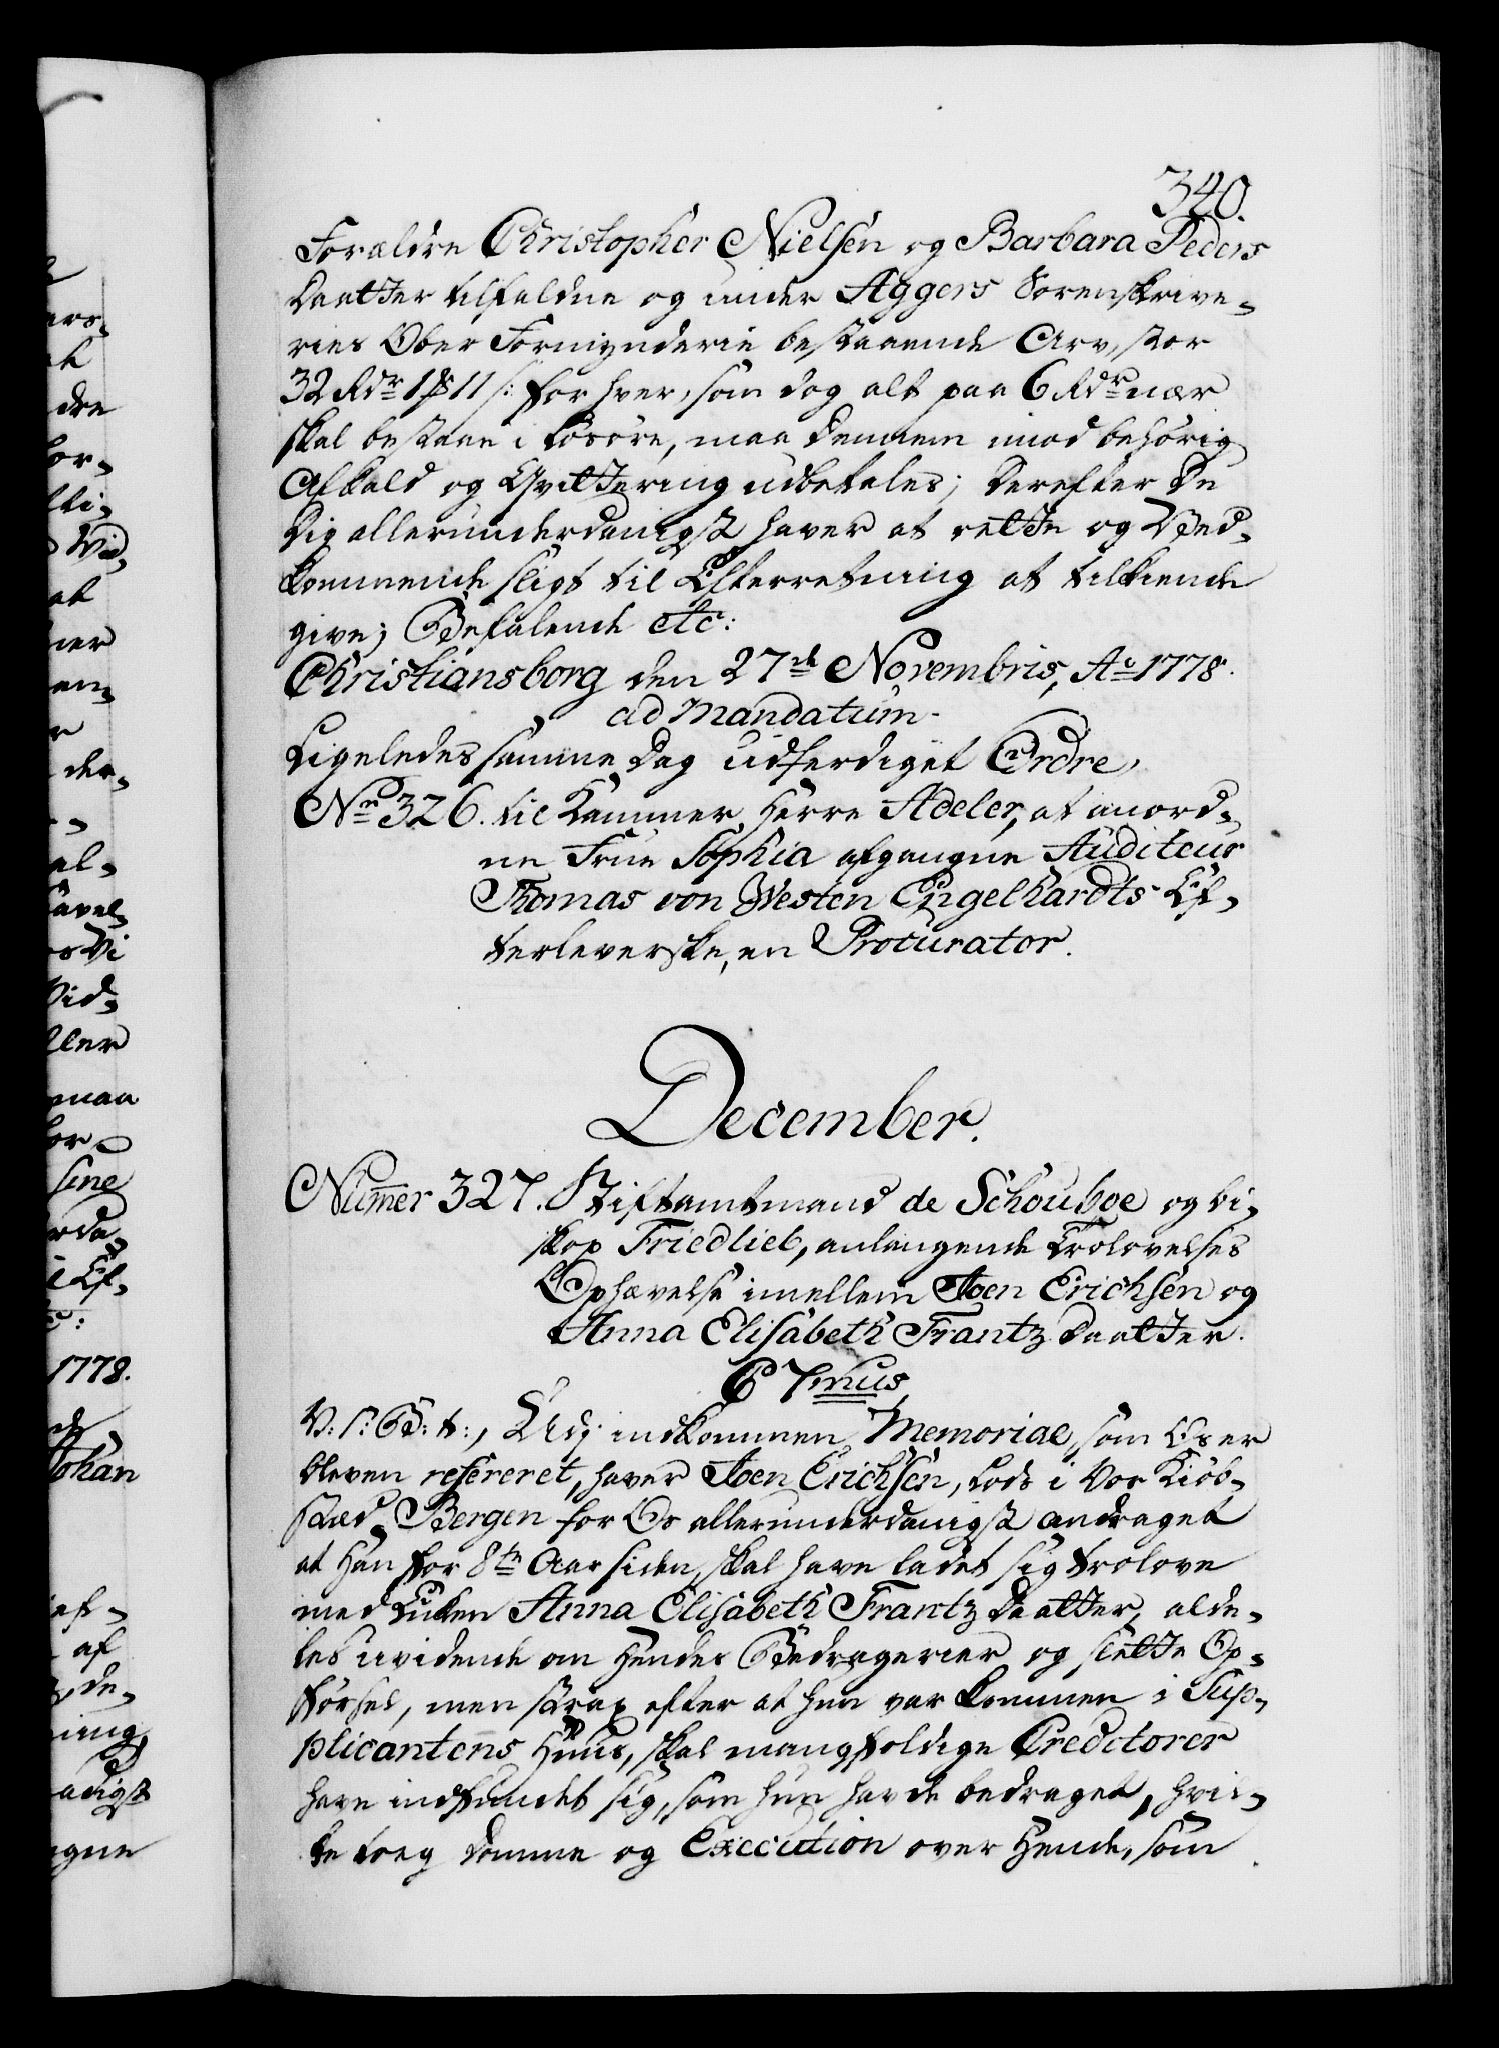 340.
Forældre Christopher Nielsen og Barbara Peders
Daatter tilfaldne og under Aggers Sorenskrive-
ries Ober Formynderie bestaaende Arv, stor
32 Rdr 1 ₰ 11 s: for hver, som dog alt paa 6 Rdr nær
skal bestaae i Løsöre, maa dennem imod behörig
Afkald og Qvittering udbetales; Derefter Du
Dig allerunderdanigst haver at rette og Ved-
kommende sligt til Efterretning at tilkiende
give; Befalende etc:
Christiansborg den 27de Novembris, Ao 1778.
ad Mandatum.
Ligeledes samme Dag udferdiget Ordre,
No 326. til Kammer Herre Adeler, at anord-
ne Frue Sophia afgangne Auditeur
Thomas von Westen Engelhardts Ef-
terleverske, en Procurator.
December.
Numer 327. Stiftamtmand de Schouboe og Bi-
skop Friedlieb, anlangende Trolovelses
Ophævelse imellem Joen Erichsen og
Anna Elisabeth Frantz Daatter.
C 7mus
V: s: G: t:, Udj indkommen Memorial, som Os er
bleven refereret, haver Joen Erichsen, Lods i Vor Kiöb-
stæd Bergen for Os allerunderdanigst andraget
at Han for 8te Aar siden, skal have ladet sig trolove
med Enken Anna Elisabeth Frantz Daatter, alde-
les uvidende om Hendes Bedragerier og slette Op-
försel, men strax efter at hun var kommen i Sup-
plicantens Huus, skal mangfoldige Creditorer
have indfundet sig, som hun havde bedraget, hvil-
ke toeg Domme og Execution over Hende, som